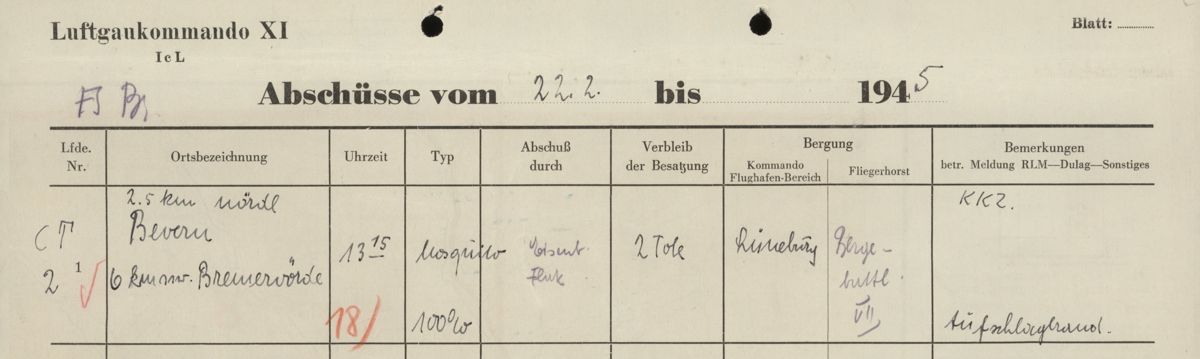 Luftgaukommando XI
Blatt:
I c L
Abschüsse vom 22.2. bis 1945
Lfde. Nr.
Ortsbezeichnung
Uhrzeit
Typ
Abschuß durch
Verbleib der Besatzung
Bergung
Kommando Flughafen-Bereich
Fliegerhorst
Bemerkungen
betr. Meldung RLM—Dulag—Sonstiges
2.5 km nördl
KKZ.
Bevern
13 15
Mosquito
Flak
2 Tote
Lüneburg
2
1
6 km nw. Bremervörde
VII
18/
100%
Aufschlagbrand.